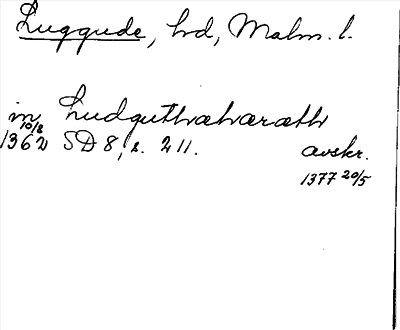 Luggude, hd, Malm. l.
in Ludguthæhæræth
10/8
1362 SD 8, s. 211.
avskr.
1377 20/5